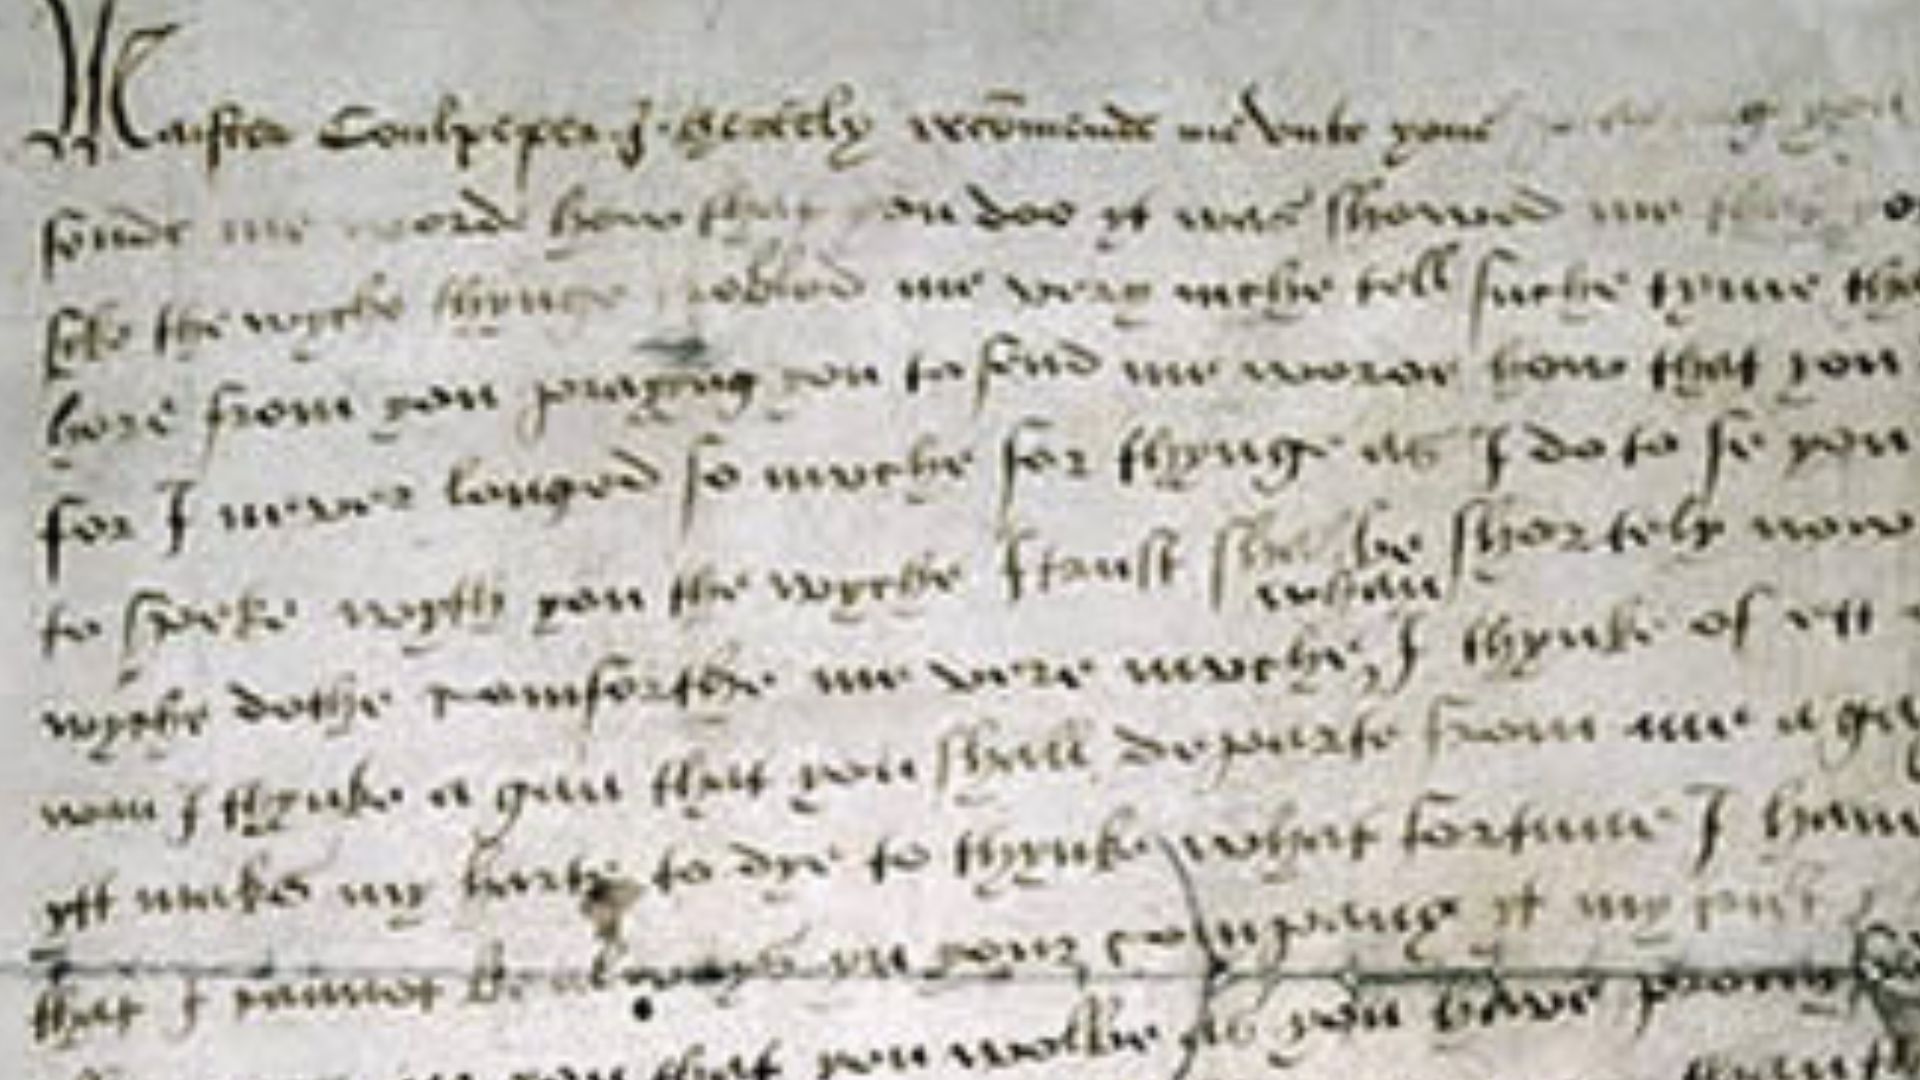 Maister Coulpeper I hertely recomende me vnto youe
sende me word how that you doo yt was showed me
seke the wyche thynge trobled me very mche tell suche tyme tha
here from you prayeng you to send me worde how that you
for I never longed so muche for thynge as I do to se you
to speke wyth you the wyche I trust shal be shortely now
wyche dothe comforthe me verie muche whan I thynke of ytt
wan I thynke a gan that you shall departe from me a ga
ytt makes my harte to dye to thynke what fortune I haue
that I cannot be always yn your company yt my
you that you wolbe as you have promy